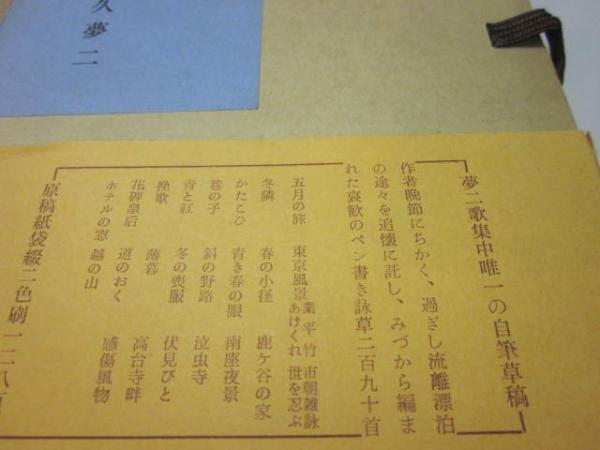 久夢二
夢二歌集中唯一の自筆草稿
作者晩節にちかく、過ぎし流離漂泊
の途々を追懐に託し、みづから編ま
れた哀歓のペン書き詠草二百九十首
五月の旅　東京風景　業平竹　市朝雑詠
あけくれ　世を忍ぶ
冬隣　春の小径　鹿ケ谷の家
かたこひ　青き春の眼　南座夜景
巷の子　斜の野路　泣虫寺
青と紅　冬の喪服　伏見びと
挽歌　薄暮　高台寺畔
花碑皇后　道のおく　感傷風物
ホテルの窓　越の山
原稿紙袋綴二色刷一二八頁